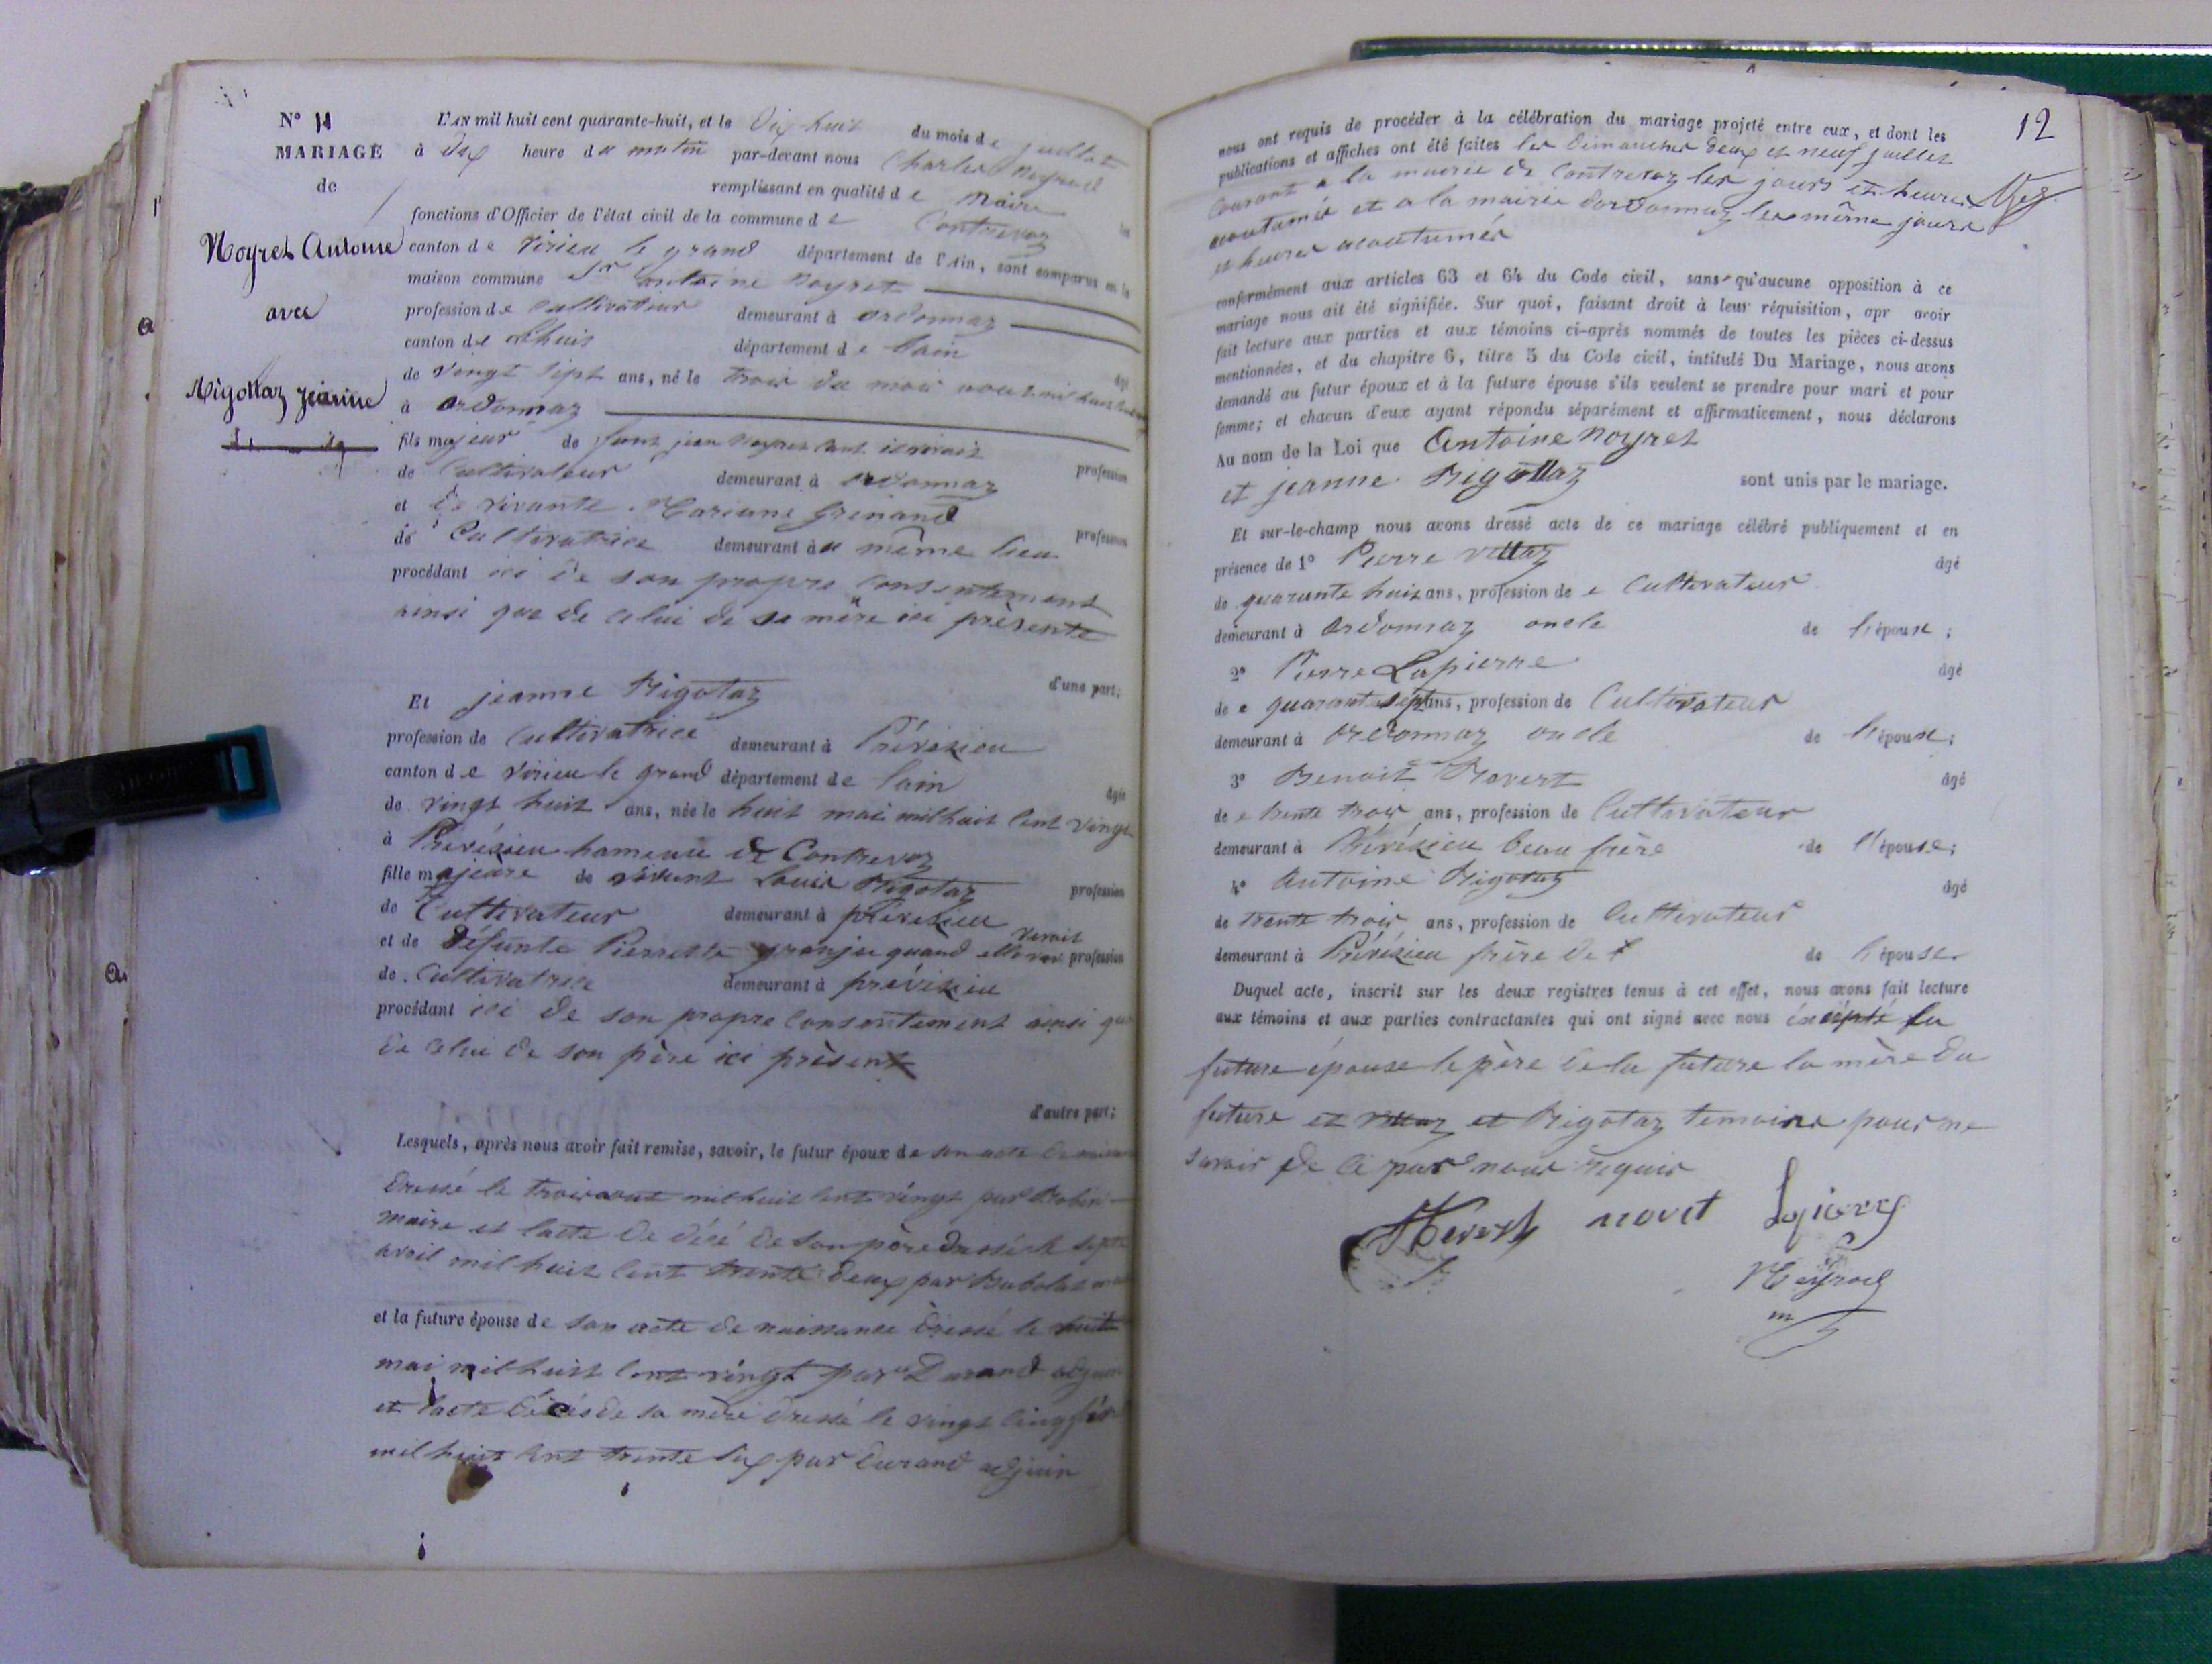 N° 11
MARIAGE
de
Noyret Antoine
avec
Rigottaz jeanne
L'AN mil huit cent quarante-huit, et le Dix huit du mois de juillet
à Dix heure du matin par-devant nous Charles Meyraud
remplissant en qualité de Maire les
fonctions d'Officier de l'état civil de la commune de Contrevoz
canton de Virieu le grand département de l'Ain, sont comparus en la
maison commune Sr antoine Noyret
profession de Cultivateur demeurant à ordonnaz
canton de Lhuis département de lain
âgé
de Vingt sept ans, né le trois du mois aout mil huit cent
à ordonnaz
fils majeur de funt jean Noyret tant il vivait
profession
de Cultivateur demeurant à ordonnaz
et de vivante Mariane Grinand
profession
de Cultivatrice demeurant au même lieu
procédant ici de son propre consentement
ainsi que de celui de sa mère ici présente
d'une part;
Et jeanne Rigotaz
profession de Cultivatrice demeurant à Prévésieu
canton de Virieu le grand département de lain
âgée
de vingt huit ans, née le huit mai mil huit cent vingt
à Prévésieu hameau de Contrevoz
fille majeure de vivant Louis Rigotaz profession
de Cultivateur demeurant à prévésieu
vivait
et de défunte Pierrette granju quand elle profession
de Cultivatrice demeurant à prévésieu
procédant ici de son propre consentement ainsi que
de celui de son père ici présent
d'autre part;
Lesquels, après nous avoir fait remise, savoir, le futur époux de son acte de naissance
dressé le trois aout mil huit cent vingt par Robin
maire et lacte de décé de son père dressé le sept
avril mil huit cent trente deux par
et la future épouse de son acte de naissance dressé le huit
mai mil huit cent vingt par Durand adjoin
et lacte décés de sa mère dressé le vingt cinq
mil huit cent trente six par Durand adjoin
12
nous ont requis de procéder à la célébration du mariage projeté entre eux, et dont les
publications et affiches ont été faites les dimanches deux et neuf juillet
courant a la mairie de Contrevoz les jours et heures
acoutumés et a la mairie dordonnaz les même jours
et heures acoutumés
conformément aux articles 63 et 64 du Code civil, sans qu'aucune opposition à ce
mariage nous ait été signifiée. Sur quoi, faisant droit à leur réquisition, apr avoir
fait lecture aux parties et aux témoins ci-après nommés de toutes les pièces ci-dessus
mentionnées, et du chapitre 6, titre 5 du Code civil, intitulé Du Mariage, nous avons
demandé au futur époux et à la future épouse s'ils veulent se prendre pour mari et pour
femme; et chacun d'eux ayant répondu séparément et affirmativement, nous déclarons
Au nom de la Loi que Antoine Noyret
et jeanne Rigottaz sont unis par le mariage.
Et sur-le-champ nous avons dressé acte de ce mariage célébré publiquement et en
présence de 1° Pierre Vettaz âgé
de quarante huit ans, profession de e Cultivateur
demeurant à Ordonnaz oncle de lépouse;
2° Pierre Lapierre âgé
de e quarante sept ans, profession de Cultivateur
demeurant à Ordonnaz oncle de lépouse;
3° Benoit Ravert âgé
de e trente trois ans, profession de Cultivateur
demeurant à Prévésieu beau frère de l'épouse;
4° Antoine Rigotaz âgé
de trente trois ans, profession de Cultivateur
demeurant à Prévésieu frère de de lépouse
Duquel acte, inscrit sur les deux registres tenus à cet effet, nous avons fait lecture
aux témoins et aux parties contractantes qui ont signé avec nous éxcépté la
future épouse le père de la future la mère du
future et Vettaz et Rigotaz temoins pour ne
savoir de ce par nous requis
novet Lapierre
Meyraud
m